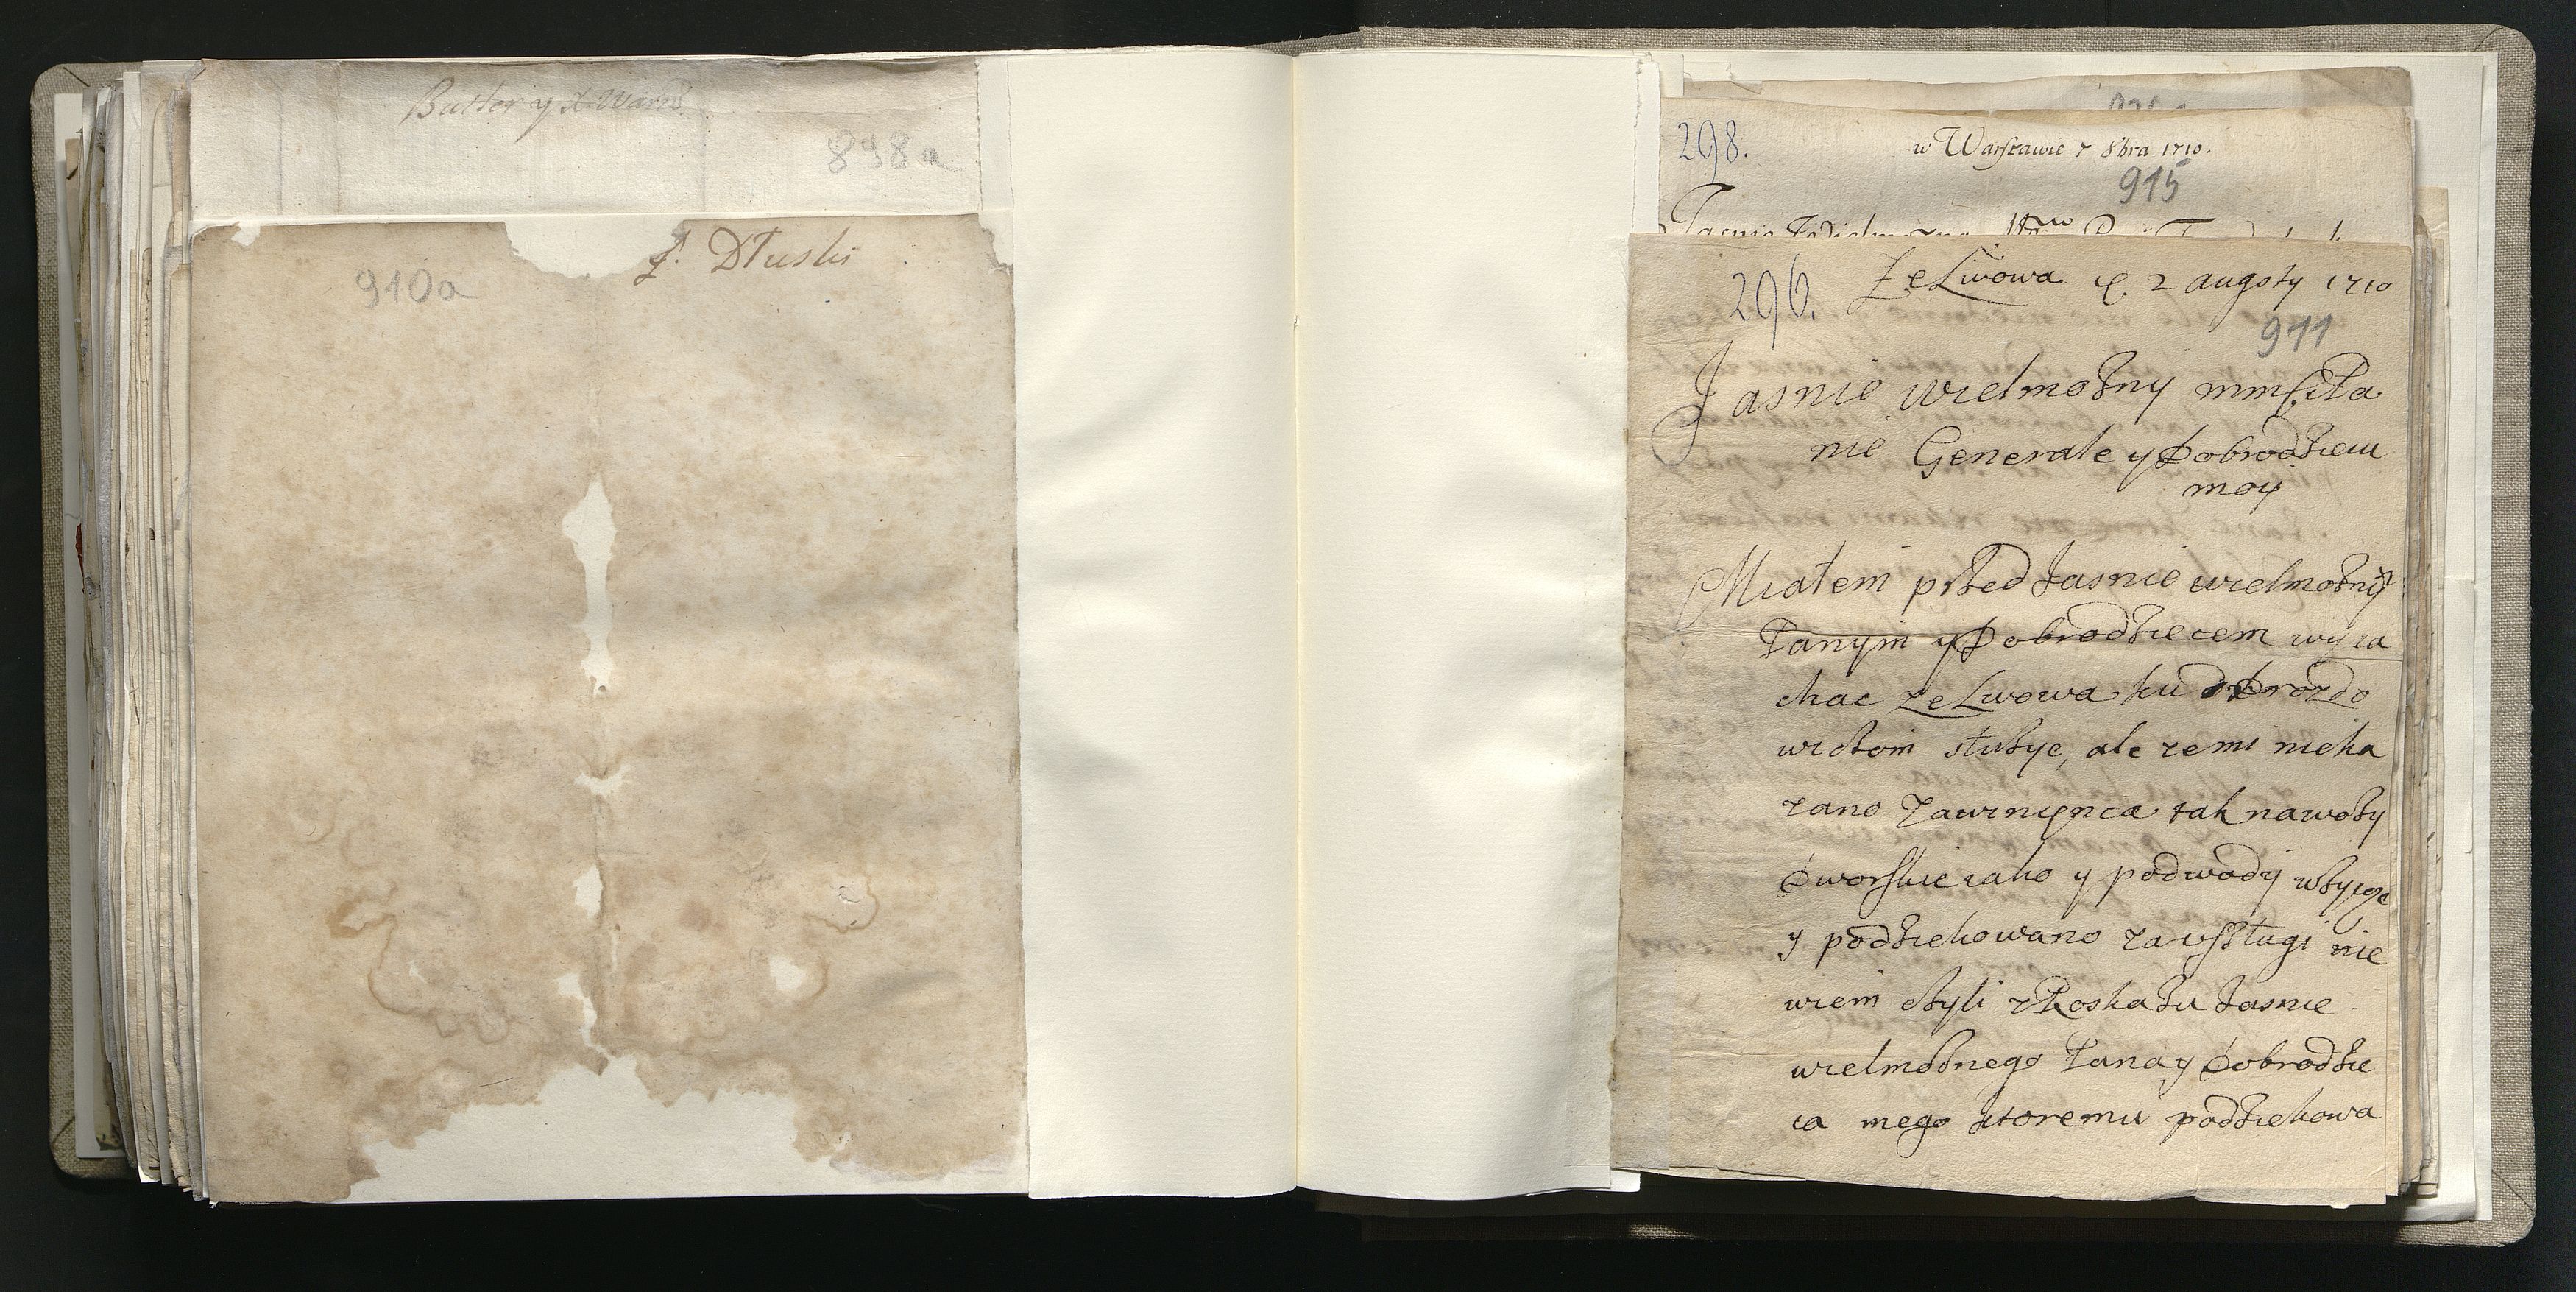 Butler y X Warn
898a
J. Dłuski
910a
298.
w Warszawie 7 8bra 1710.
915
296.
Ze Lwowa d. 2 augusty 1710
911
Jasnie wielmożny mmści Pa
nie Generale y Dobrodzieiu
moy
Miałem przed Jasnie wielmożnym
Panym y Dobrodzieiem wyia
chac ze Lwowa ku
stużyc, ale ze mi nieka
zano tak nawozy
Dworskie iako y podwody
y podziekowano za usługi nie
wiem czyli z Roskazu Jasnie
wielmożnego Pana y Dobrodzie
ia mego ktoremu podziekowa